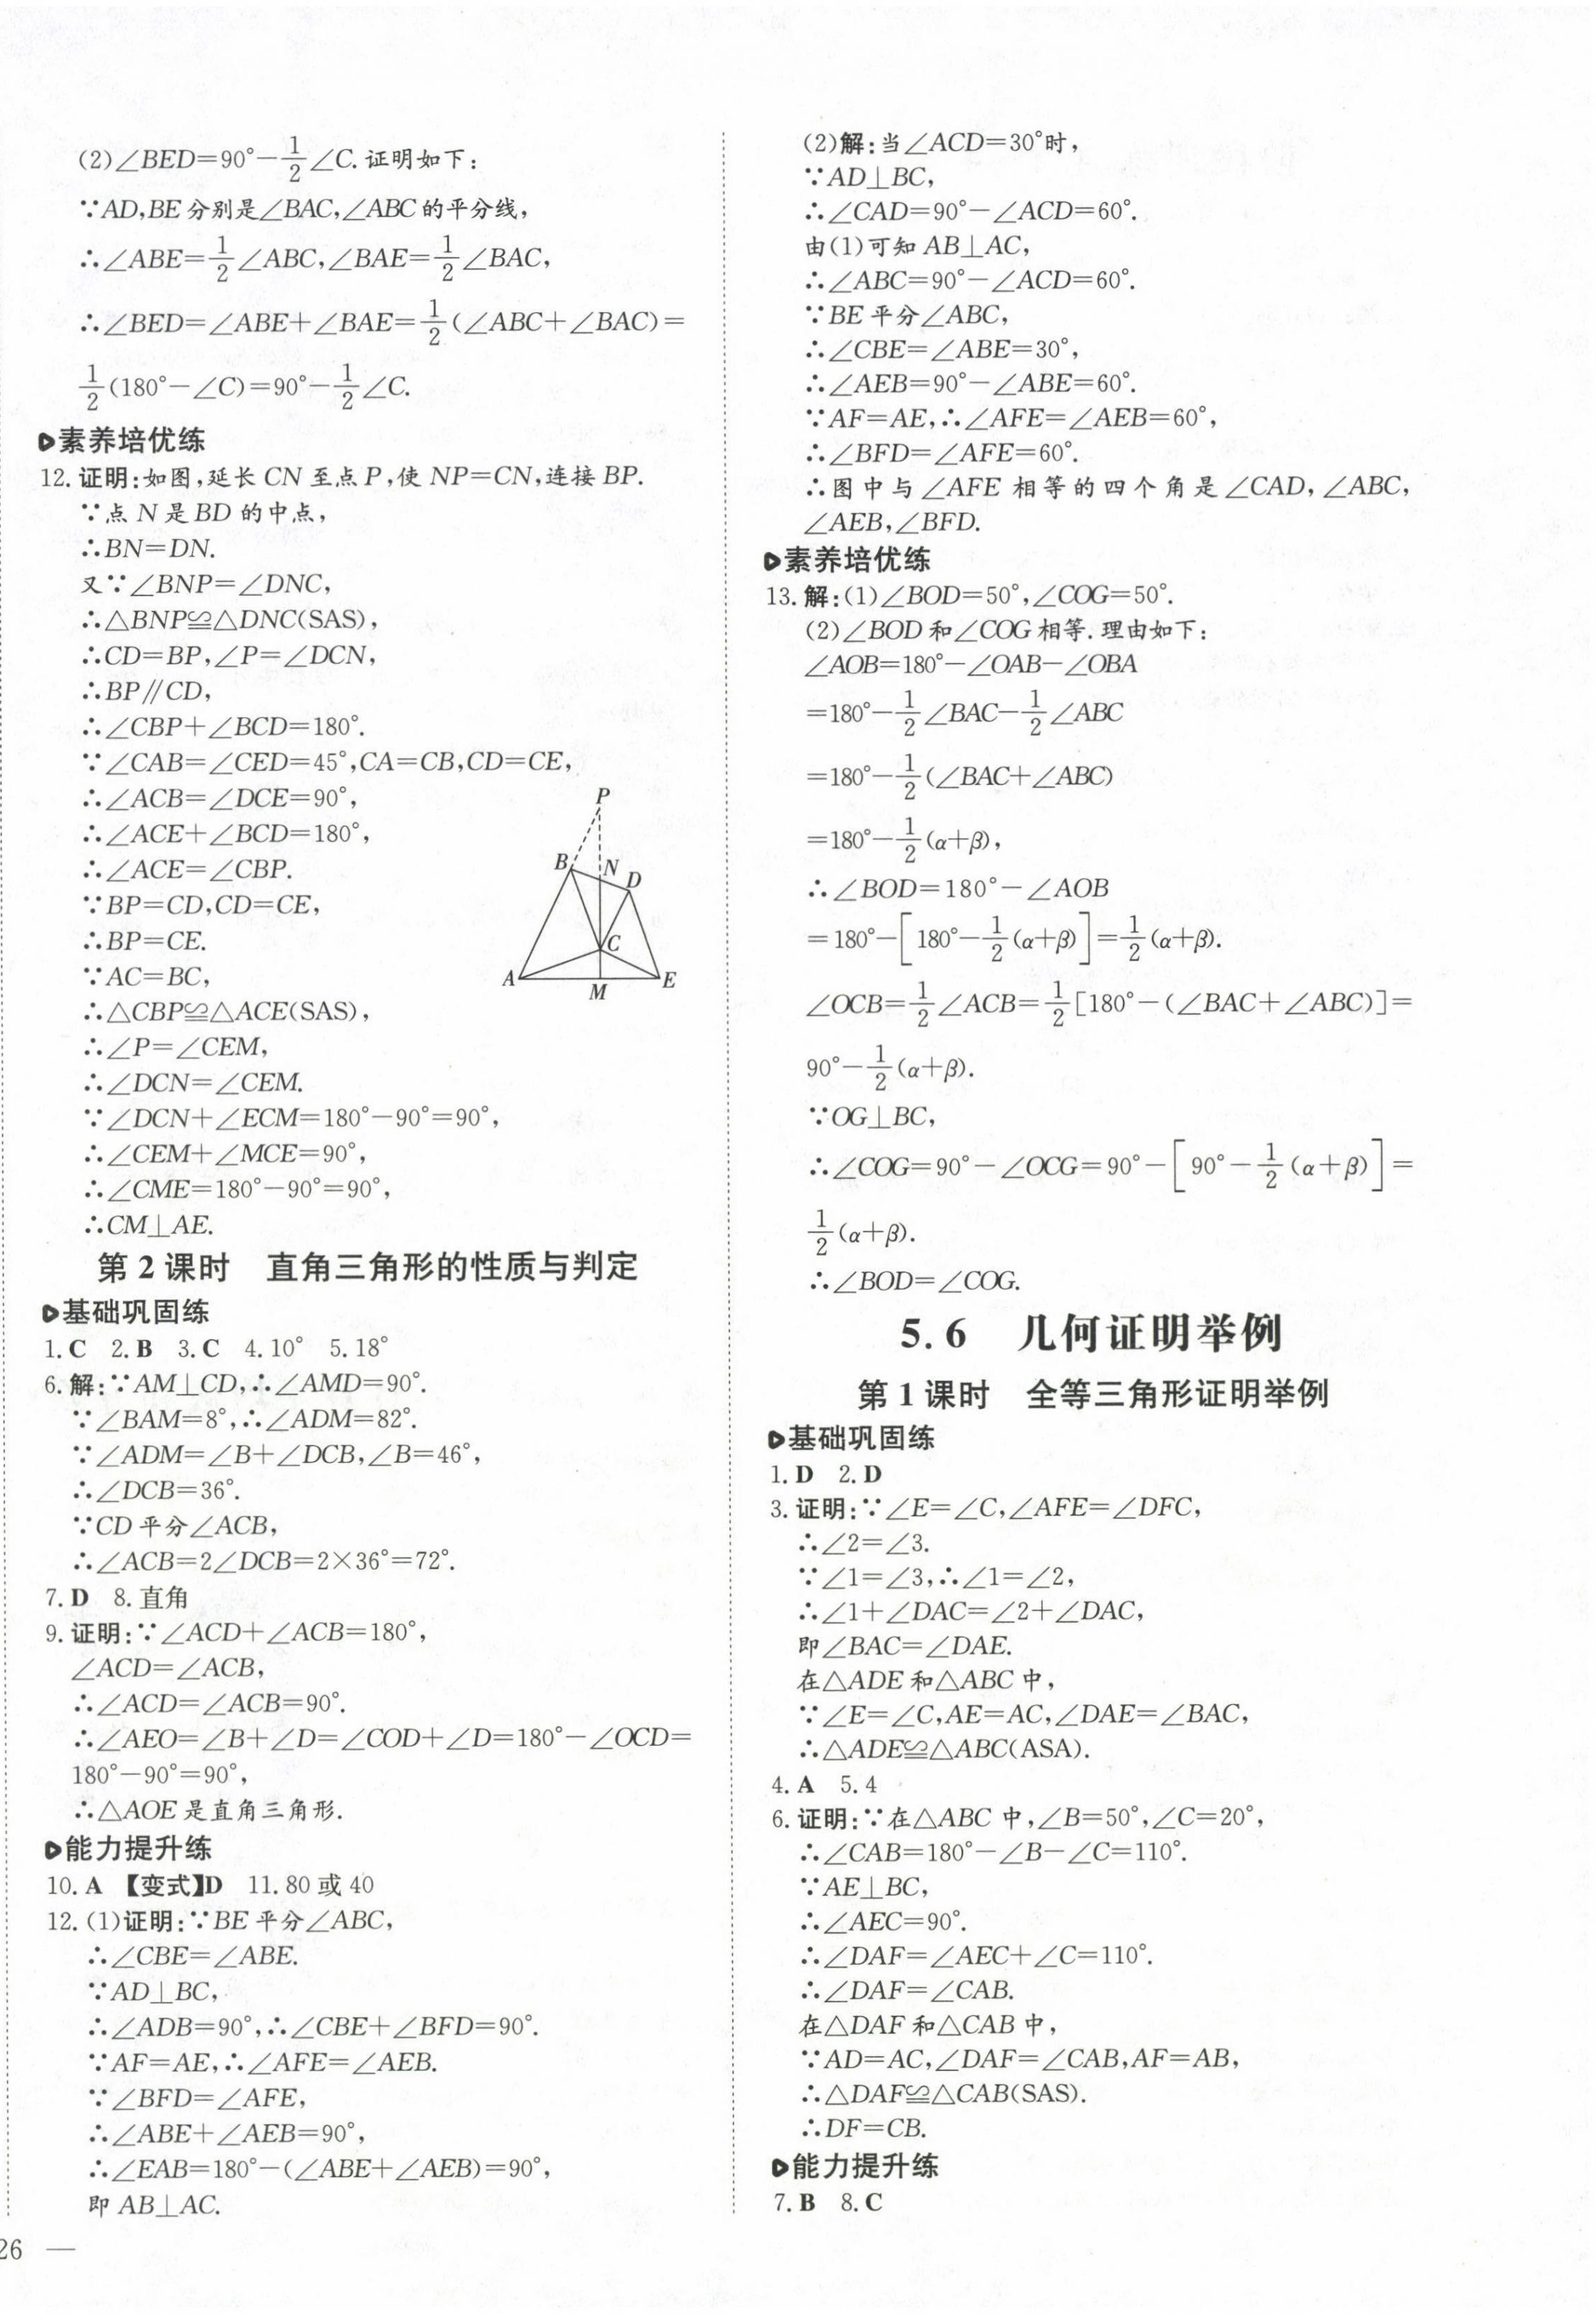 (2)∠BED=90°-1/2∠C.证明如下:
∵AD,BE分别是∠BAC,∠ABC的平分线,
∴∠ABE=1/2∠ABC,∠BAE=1/2∠BAC,
∴∠BED=∠ABE+∠BAE=1/2(∠ABC+∠BAC)=
1/2(180°-∠C)=90°-1/2∠C.
素养培优练
12.证明:如图,延长CN至点P,使NP=CN,连接BP.
∵点N是BD的中点,
∴BN=DN.
又∵∠BNP=∠DNC,
∴△BNP≌△DNC(SAS),
∴CD=BP,∠P=∠DCN,
∴BP∥CD,
∴∠CBP+∠BCD=180°.
∵∠CAB=∠CED=45°,CA=CB,CD=CE,
∴∠ACB=∠DCE=90°,
∴∠ACE+∠BCD=180°,
∴∠ACE=∠CBP.
∵BP=CD,CD=CE,
∴BP=CE.
∵AC=BC,
∴△CBP≌△ACE(SAS),
∴∠P=∠CEM,
∴∠DCN=∠CEM.
∵∠DCN+∠ECM=180°-90°=90°,
∴∠CEM+∠MCE=90°,
∴∠CME=180°-90°=90°,
∴CM⊥AE.
P
B
N
D
C
A
M
E
第2课时 直角三角形的性质与判定
基础巩固练
1.C 2.B 3.C 4.10° 5.18°
6.解:∵AM⊥CD,∴∠AMD=90°.
∵∠BAM=8°,∴∠ADM=82°.
∵∠ADM=∠B+∠DCB,∠B=46°,
∴∠DCB=36°.
∵CD平分∠ACB,
∴∠ACB=2∠DCB=2×36°=72°.
7.D 8.直角
9.证明:∵∠ACD+∠ACB=180°,
∠ACD=∠ACB,
∴∠ACD=∠ACB=90°.
∴∠AEO=∠B+∠D=∠COD+∠D=180°-∠OCD=
180°-90°=90°,
∴△AOE是直角三角形.
能力提升练
10.A 【变式】D 11.80或40
12.(1)证明:∵BE平分∠ABC,
∴∠CBE=∠ABE.
∵AD⊥BC,
∴∠ADB=90°,∴∠CBE+∠BFD=90°.
∵AF=AE,∴∠AFE=∠AEB.
∵∠BFD=∠AFE,
∴∠ABE+∠AEB=90°,
∴∠EAB=180°-(∠ABE+∠AEB)=90°,
即AB⊥AC.
26 —
(2)解:当∠ACD=30°时,
∵AD⊥BC,
∴∠CAD=90°-∠ACD=60°.
由(1)可知AB⊥AC,
∴∠ABC=90°-∠ACD=60°.
∵BE平分∠ABC,
∴∠CBE=∠ABE=30°,
∴∠AEB=90°-∠ABE=60°.
∵AF=AE,∴∠AFE=∠AEB=60°,
∴∠BFD=∠AFE=60°.
∴图中与∠AFE相等的四个角是∠CAD,∠ABC,
∠AEB,∠BFD.
素养培优练
13.解:(1)∠BOD=50°,∠COG=50°.
(2)∠BOD和∠COG相等.理由如下:
∠AOB=180°-∠OAB-∠OBA
=180°-1/2∠BAC-1/2∠ABC
=180°-1/2(∠BAC+∠ABC)
=180°-1/2(α+β),
∴∠BOD=180°-∠AOB
=180°-[180°-1/2(α+β)]=1/2(α+β).
∠OCB=1/2∠ACB=1/2[180°-(∠BAC+∠ABC)]=
90°-1/2(α+β).
∵OG⊥BC,
∴∠COG=90°-∠OCG=90°-[90°-1/2(α+β)]=
1/2(α+β).
∴∠BOD=∠COG.
5.6 几何证明举例
第1课时 全等三角形证明举例
基础巩固练
1.D 2.D
3.证明:∵∠E=∠C,∠AFE=∠DFC,
∴∠2=∠3.
∵∠1=∠3,∴∠1=∠2,
∴∠1+∠DAC=∠2+∠DAC,
即∠BAC=∠DAE.
在△ADE和△ABC中,
∵∠E=∠C,AE=AC,∠DAE=∠BAC,
∴△ADE≌△ABC(ASA).
4.A 5.4
6.证明:∵在△ABC中,∠B=50°,∠C=20°,
∴∠CAB=180°-∠B-∠C=110°.
∵AE⊥BC,
∴∠AEC=90°.
∴∠DAF=∠AEC+∠C=110°.
∴∠DAF=∠CAB.
在△DAF和△CAB中,
∵AD=AC,∠DAF=∠CAB,AF=AB,
∴△DAF≌△CAB(SAS).
∴DF=CB.
能力提升练
7.B 8.C